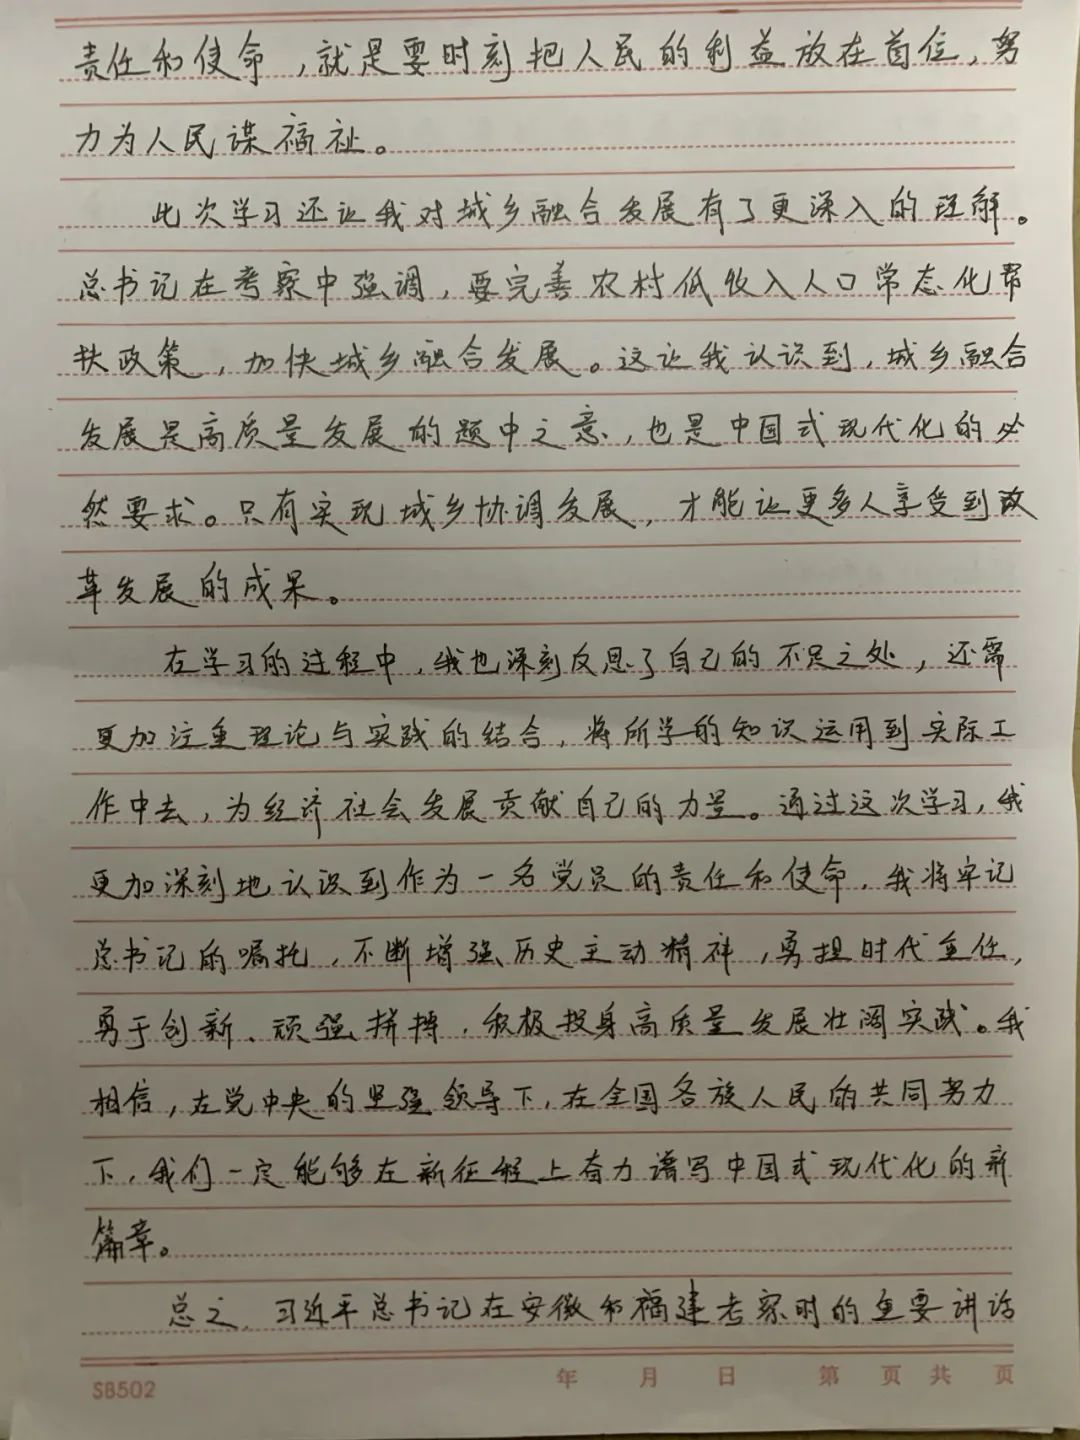 责任和使命，就是要时刻把人民的利益放在首位，努
力为人民谋福祉。
此次学习还让我对城乡融合发展有了更深入的理解。
总书记在考察中强调，要完善农村低收入人口常态化帮
扶政策，加快城乡融合发展。这让我认识到，城乡融合
发展是高质量发展的题中之意，也是中国式现代化的必
然要求。只有实现城乡协调发展，才能让更多人享受到改
革发展的成果。
在学习的过程中，我也深刻反思了自己的不足之处，还需
更加注重理论与实践的结合，将所学的知识运用到实际工
作中去，为经济社会发展贡献自己的力量。通过这次学习，我
更加深刻地认识到作为一名党员的责任和使命，我将牢记
总书记的嘱托，不断增强历史主动精神，勇担时代重任，
勇于创新、顽强拼搏，积极投身高质量发展壮阔实践。我
相信，在党中央的坚强领导下，在全国各族人民的共同努力
下，我们一定能够在新征程上奋力谱写中国式现代化的新
篇章。
总之，习近平总书记在安徽和福建考察时的重要讲话
SB502 年 月 日 第 页 共 页